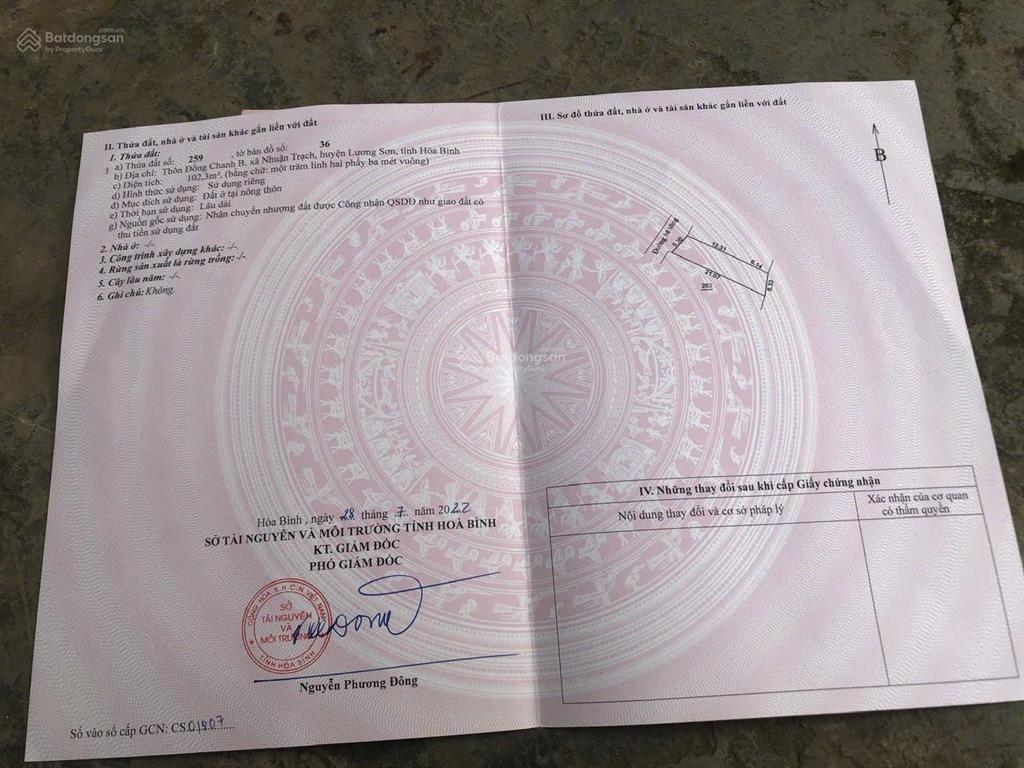 Batdongsan
.com.vn
by PropertyGuru
II. Thửa đất, nhà ở và tài sản khác gắn liền với đất
1. Thửa đất:
a) Thửa đất số: 259 , tờ bản đồ số: 36
b) Địa chỉ: Thôn Đồng Chanh B, xã Nhuận Trạch, huyện Lương Sơn, tỉnh Hòa Bình
c) Diện tích: 102,3m², (bằng chữ: một trăm linh hai phẩy ba mét vuông)
d) Hình thức sử dụng: Sử dụng riêng
đ) Mục đích sử dụng: Đất ở tại nông thôn
e) Thời hạn sử dụng: Lâu dài
g) Nguồn gốc sử dụng: Nhận chuyển nhượng đất được Công nhận QSDĐ như giao đất có
thu tiền sử dụng đất
2. Nhà ở: -/-
3. Công trình xây dựng khác: -/-
4. Rừng sản xuất là rừng trồng: -/-
5. Cây lâu năm: -/-
6. Ghi chú: Không
Hòa Bình , ngày 28 tháng 7 năm 2022
SỞ TÀI NGUYÊN VÀ MÔI TRƯỜNG TỈNH HOÀ BÌNH
KT. GIÁM ĐỐC
PHÓ GIÁM ĐỐC
CỘNG HÒA X.H.C.N VIỆT NAM
SỞ
TÀI NGUYÊN
VÀ
MÔI TRƯỜNG
TỈNH HÒA BÌNH
Nguyễn Phương Đông
Số vào sổ cấp GCN: CS.01807......
III. Sơ đồ thửa đất, nhà ở và tài sản khác gắn liền với đất
B
Đường bê tông
5.30
12.31
6.14
21.07
5.33
263
Batdongsan
IV. Những thay đổi sau khi cấp Giấy chứng nhận
Nội dung thay đổi và cơ sở pháp lý
Xác nhận của cơ quan
có thẩm quyền